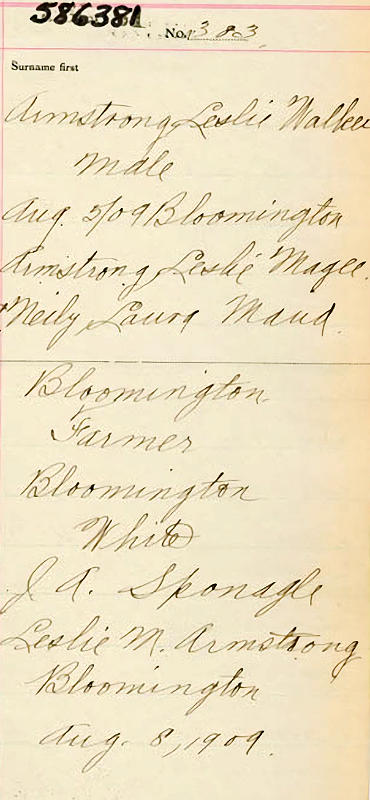 586381
No. 383
Surname first
Armstrong Leslie Walker
Male
Aug. 5/09 Bloomington
Armstrong Leslie Magee.
Neily Laura Maud.
Bloomington
Farmer
Bloomington
White
J. A. Sponagle
Leslie M. Armstrong
Bloomington
Aug. 8, 1909.